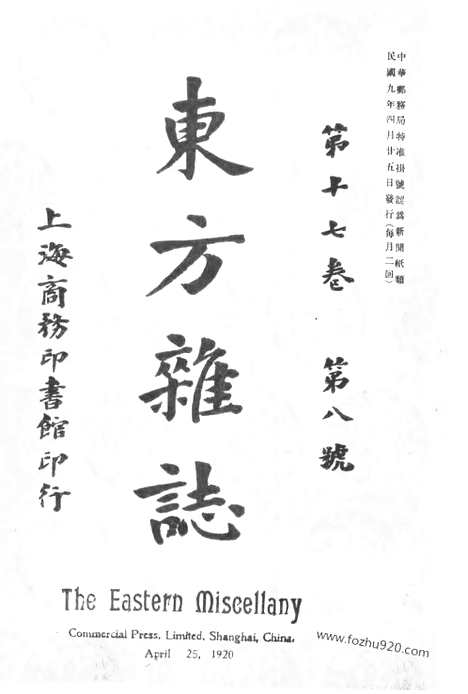 中華郵務局特准掛號認爲新聞紙類
民國九年四月廿五日發行(每月二回)
第十七卷 第八號
東方雜誌
上海商務印書館印行
The Eastern Miscellany
Commercial Press, Limited, Shanghai, China.
April 25, 1920
www.fozhu920.com